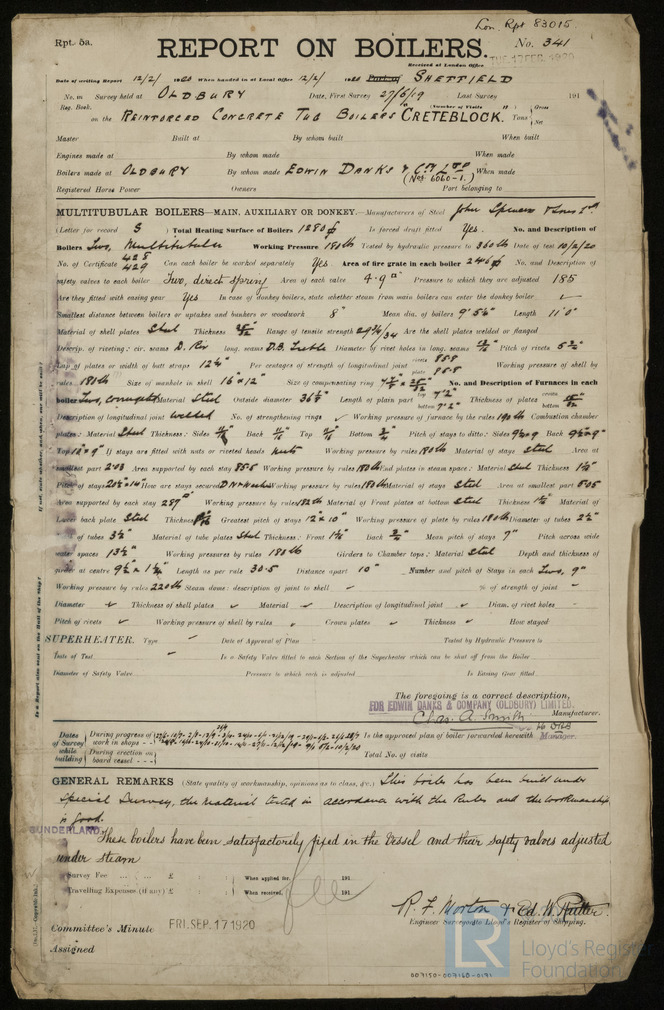 Lon. Rpt 83015
Rpt. 5a.
REPORT ON BOILERS.
No. 341
Received at London Office TUE. 17 FEB. 1920
Date of writing Report 12/2/ 1920 When handed in at Local Office 12/2/ 1920 Port of SHEFFIELD
No. in Survey held at OLDBURY Date, First Survey 27/6/19 Last Survey 191
Reg. Book. (Number of Visits ) Gross
on the REINFORCED CONCRETE TUG BOILERS CRETEBLOCK. Tons Net
Master Built at By whom built When built
Engines made at By whom made When made
Boilers made at OLDBURY By whom made EDWIN DANKS & Coy LTD When made
(Nos. 6060-1.)
Registered Horse Power Owners Port belonging to
MULTITUBULAR BOILERS—MAIN, AUXILIARY OR DONKEY.—Manufacturers of Steel John Spencer & Sons Ltd
(Letter for record S ) Total Heating Surface of Boilers 1280 Is forced draft fitted Yes. No. and Description of
Boilers Two, Multitubular Working Pressure 180 lb Tested by hydraulic pressure to 360 lb Date of test 10/2/20
No. of Certificate 428 429 Can each boiler be worked separately Yes Area of fire grate in each boiler No. and Description of
safety valves to each boiler Two, direct spring Area of each valve 4.9 Pressure to which they are adjusted 185
Are they fitted with easing gear Yes In case of donkey boilers, state whether steam from main boilers can enter the donkey boiler
Smallest distance between boilers or uptakes and bunkers or woodwork 8" Mean dia. of boilers 9' 5⅝" Length 11' 0"
Material of shell plates Steel Thickness Range of tensile strength 29¾/34 Are the shell plates welded or flanged
Descrip. of riveting: cir. seams D. Riv long. seams D.B. Treble Diameter of rivet holes in long. seams Pitch of rivets
Lap of plates or width of butt straps Per centages of strength of longitudinal joint rivets 85.8 plate 85.8 Working pressure of shell by
rules 180 lb Size of manhole in shell 16" x 12" Size of compensating ring No. and Description of Furnaces in each
boiler Two, corrugated Material Steel Outside diameter 36½" Length of plain part top 7' 2" bottom 7' 2" Thickness of plates crown bottom
Description of longitudinal joint welded No. of strengthening rings Working pressure of furnace by the rules 190 lb Combustion chamber
plates: Material Steel Thickness: Sides Back Top Bottom Pitch of stays to ditto: Sides 9½ x 9 Back 9½ x 9"
Top 12" x 9" If stays are fitted with nuts or riveted heads Nuts Working pressure by rules 180 lb Material of stays Steel Area at
smallest part 2.03 Area supported by each stay 85.5 Working pressure by rules 180 lb End plates in steam space: Material Steel Thickness
Pitch of stays How are stays secured D.N & Washers Working pressure by rules 180 lb Material of stays Steel Area at smallest part
Area supported by each stay 287 Working pressure by rules 182 lb Material of Front plates at bottom Steel Thickness Material of
Lower back plate Steel Thickness Greatest pitch of stays 12" x 10" Working pressure of plate by rules 180 lb Diameter of tubes 2½"
Pitch of tubes 3½" Material of tube plates Steel Thickness: Front Back Mean pitch of stays 7" Pitch across wide
water spaces 13½" Working pressures by rules 180 lb Girders to Chamber tops: Material Steel Depth and thickness of
girder at centre Length as per rule 30.5 Distance apart 10" Number and pitch of Stays in each Two, 9"
Working pressure by rules 220 lb Steam dome: description of joint to shell % of strength of joint
Diameter Thickness of shell plates Material Description of longitudinal joint Diam. of rivet holes
Pitch of rivets Working pressure of shell by rules Crown plates Thickness How stayed
SUPERHEATER. Type Date of Approval of Plan Tested by Hydraulic Pressure to
Date of Test Is a Safety Valve fitted to each Section of the Superheater which can be shut off from the Boiler
Diameter of Safety Valve Pressure to which each is adjusted Is Easing Gear fitted
The foregoing is a correct description,
FOR EDWIN DANKS & COMPANY (OLDBURY) LIMITED.
Chas. A. Smith Manufacturer.
Dates of Survey while building During progress of work in shops - - During erection on board vessel - - -
Is the approved plan of boiler forwarded herewith
Total No. of visits
GENERAL REMARKS (State quality of workmanship, opinions as to class, &c.) This boiler has been built under
Special Survey, the material tested in accordance with the Rules and the workmanship
is good.
SUNDERLAND.
These boilers have been satisfactorily fixed in the vessel and their safety valves adjusted
under steam
Survey Fee ... ... ... £ When applied for, 191
Travelling Expenses (if any) £ When received, 191
R. F. Morton & Ed. W. Rutter.
Engineer Surveyors to Lloyd's Register of Shipping.
Committee's Minute FRI. SEP. 17 1920
Assigned
LR Lloyd's Register Foundation
007150-007160-0191